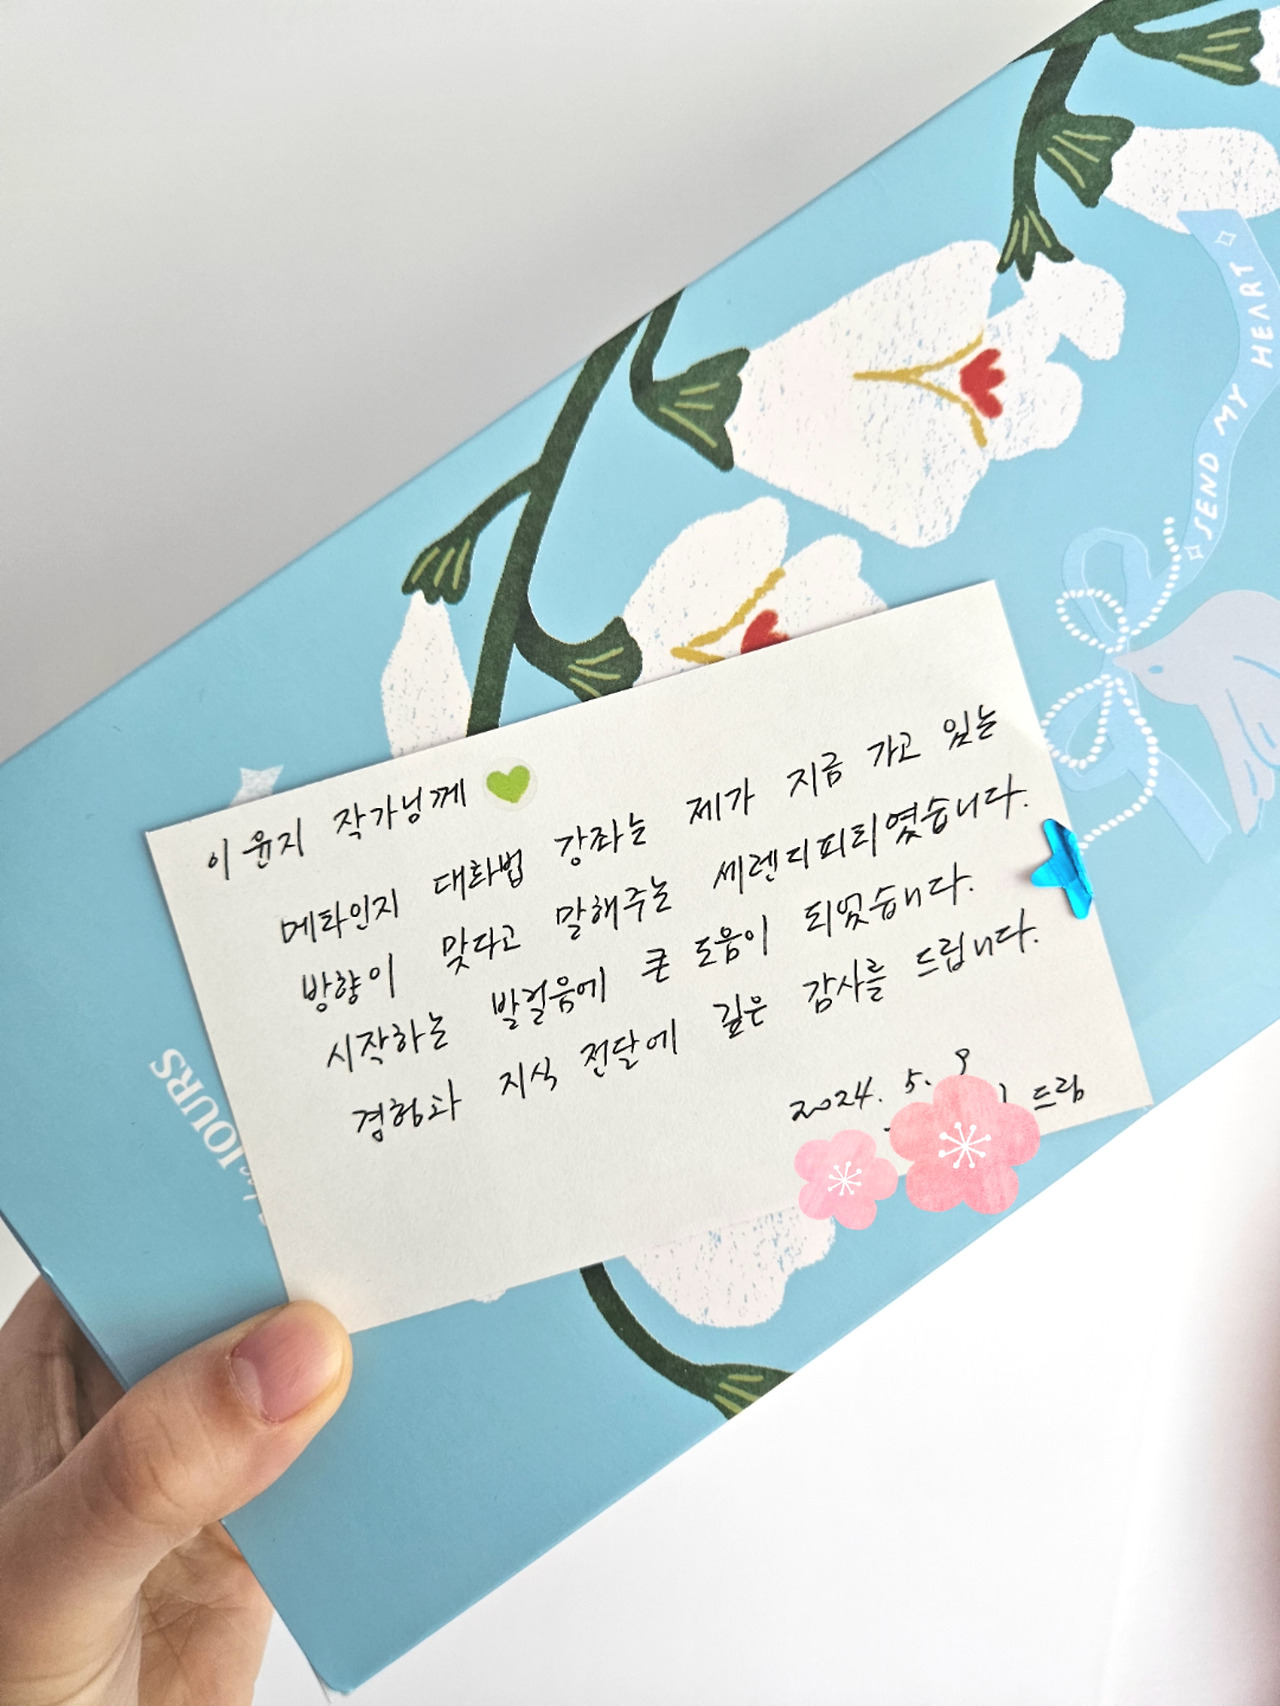 이윤지 작가님께
메타인지 대화법 강좌는 제가 지금 가고 있는
방향이 맞다고 말해주는 세렌디피티였습니다.
시작하는 발걸음에 큰 도움이 되었습니다.
경험과 지식 전달에 깊은 감사를 드립니다.
2024. 5. 9
드림
SEND MY HEART
JOURS